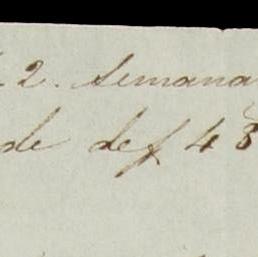 2. Semana
de def 48